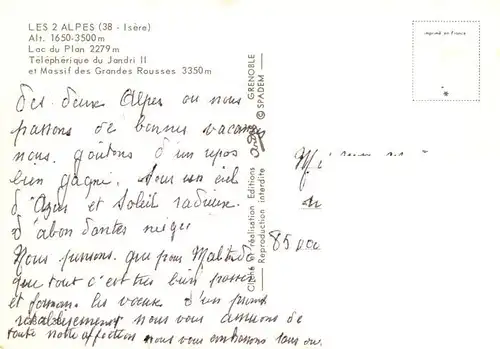 LES 2 ALPES (38 - Isère)
Alt. 1650-3500 m
Lac du Plan 2279 m
Téléphérique du Jandri II
et Massif des Grandes Rousses 3350 m
imprimé en France
des deux Alpes ou nous
passons de bonnes vacan
nous goûtons d'un repos
bien gagné. Sous un ciel
d'Azur et Soleil radieux.
d'abondantes neiges
Nous pensons que pour
que tout c'est très bien passé
et formons les vœux d'un prompt
rétablissement nous vous assurons de
toute notre affection nous vous embrassons
Cliché et réalisation Editions André GRENOBLE
Reproduction interdite © SPADEM
85000